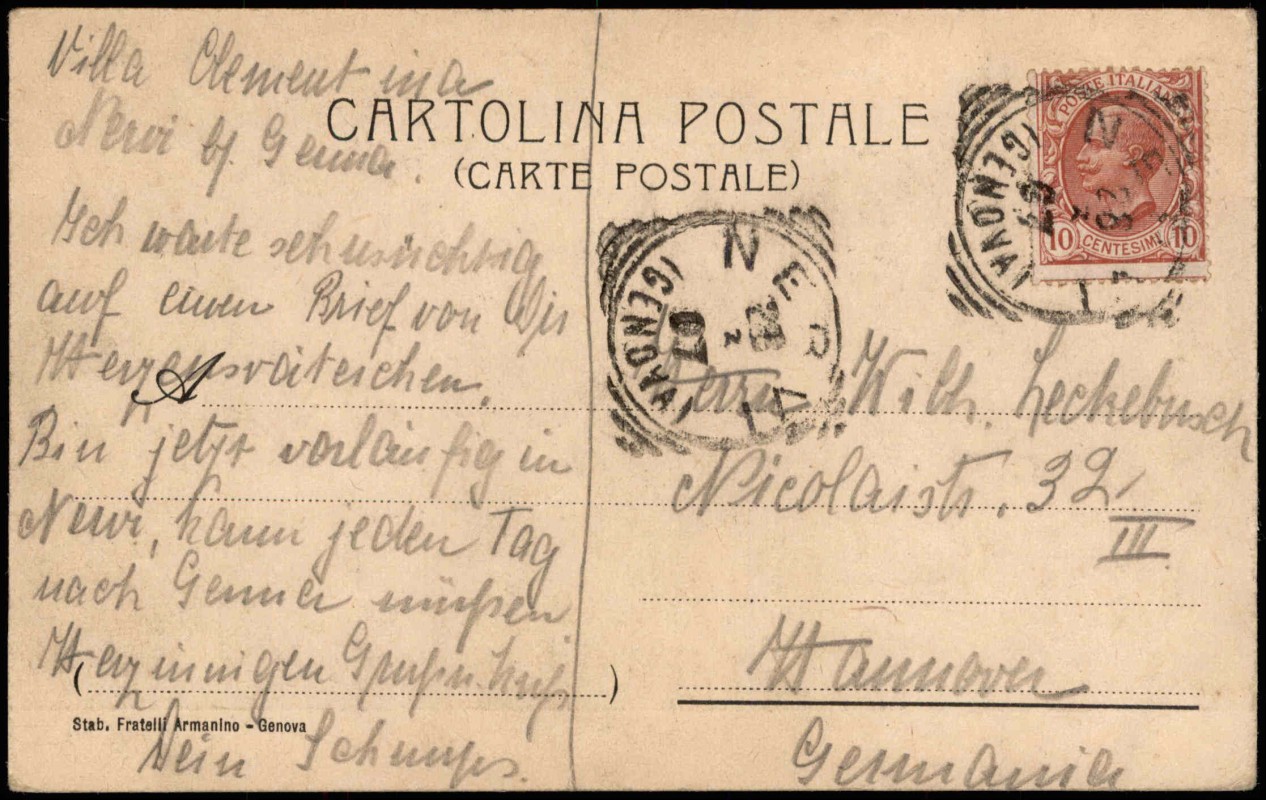 Villa Clementina
Nervi b/ Genua.
Ich warte sehnsüchtig
auf einen Brief von Dir
Herzensväteichen.
Bin jetzt vorläufig in
Nervi, kann jeden Tag
nach Genua müssen
Herzinnigen Gruß u. Kuß
Dein Schnups.
CARTOLINA POSTALE
(CARTE POSTALE)
A
Stab. Fratelli Armanino - Genova
POSTE ITALIANE
10 CENTESIMI 10
NERVI
(GENOVA)
07
NERVI
(GENOVA)
07
Herrn Wilh. Leckebusch
Nicolaistr. 32
III
Hannover
Germania